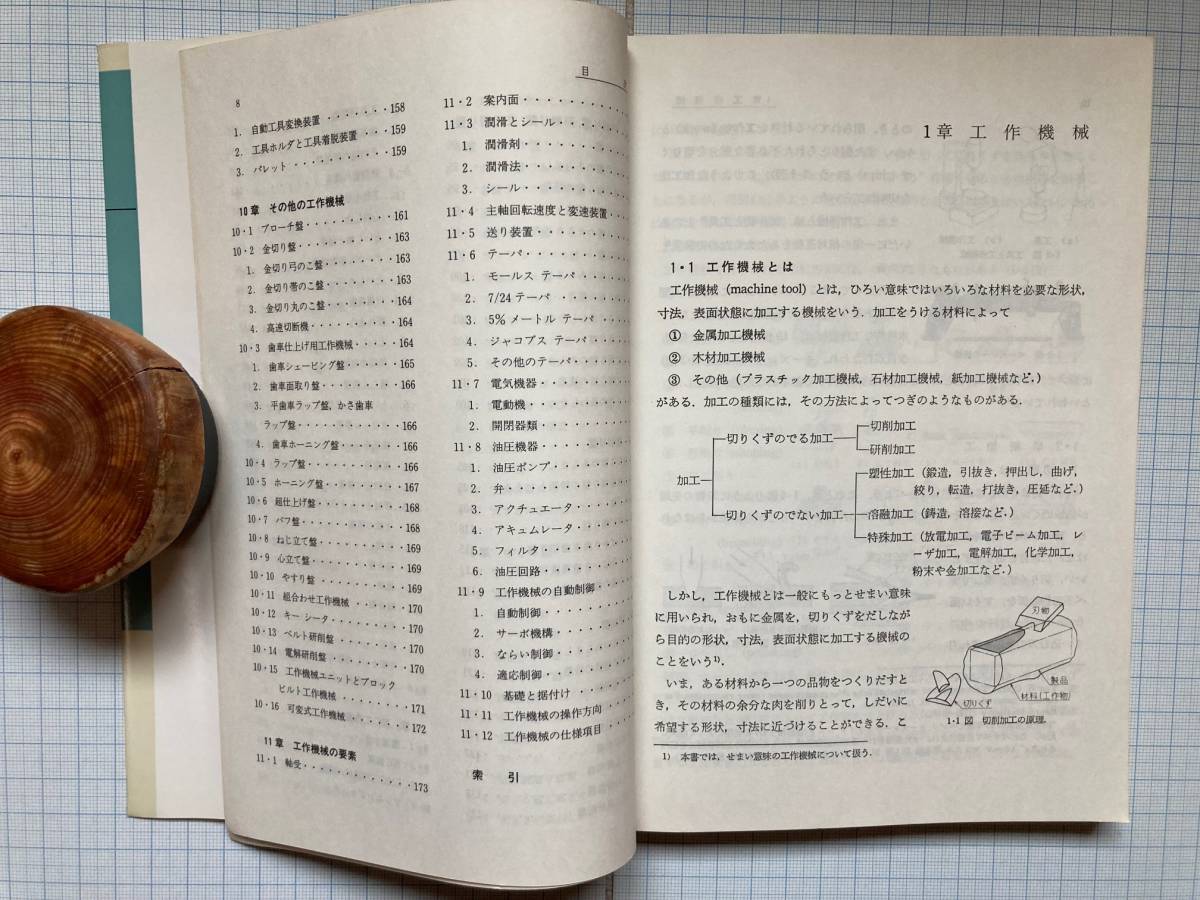 8
1. 自動工具変換装置 ･･･････158
2. 工具ホルダと工具着脱装置 ･･159
3. パレット･･･････････159
10章 その他の工作機械
10・1 ブローチ盤･･････････161
10・2 金切り盤･･･････････163
1. 金切り弓のこ盤････････163
2. 金切り帯のこ盤････････163
3. 金切り丸のこ盤････････164
4. 高速切断機･･････････164
10・3 歯車仕上げ用工作機械･････164
1. 歯車シェービング盤･･････165
2. 歯車面取り盤･････････166
3. 平歯車ラップ盤, かさ歯車
ラップ盤･･･････････166
4. 歯車ホーニング盤･･･････166
10・4 ラップ盤･･･････････166
10・5 ホーニング盤･････････167
10・6 超仕上げ盤･･････････168
10・7 バフ盤････････････168
10・8 ねじ立て盤･･････････169
10・9 心立て盤･･･････････169
10・10 やすり盤･･････････169
10・11 組合わせ工作機械･･････170
10・12 キー シータ････････170
10・13 ベルト研削盤････････170
10・14 電解研削盤･････････170
10・15 工作機械ユニットとブロック
ビルト工作機械････････171
10・16 可変式工作機械･･･････172
11章 工作機械の要素
11・1 軸受･････････････173
目
11・2 案内面･･････････
11・3 潤滑とシール･･･････
1. 潤滑剤･･････････
2. 潤滑法･･････････
3. シール･･････････
11・4 主軸回転速度と変速装置･･
11・5 送り装置･････････
11・6 テーパ･･････････
1. モールス テーパ･････
2. 7/24テーパ ･･････
3. 5%メートル テーパ ･･･
4. ジャコブス テーパ････
5. その他のテーパ･･････
11・7 電気機器･････････
1. 電動機･･････････
2. 開閉器類･････････
11・8 油圧機器･････････
1. 油圧ポンプ････････
2. 弁････････････
3. アクチュエータ･･････
4. アキュムレータ･･････
5. フィルタ･････････
6. 油圧回路･････････
11・9 工作機械の自動制御････
1. 自動制御･････････
2. サーボ機構････････
3. ならい制御････････
4. 適応制御･････････
11・10 基礎と据付け･･････
11・11 工作機械の操作方向･･･
11・12 工作機械の仕様項目･･･
索 引
1章 工作機械
1・1 工作機械とは
工作機械 (machine tool) とは, ひろい意味ではいろいろな材料を必要な形状,
寸法, 表面状態に加工する機械をいう. 加工をうける材料によって
① 金属加工機械
② 木材加工機械
③ その他 (プラスチック加工機械, 石材加工機械, 紙加工機械など.)
がある. 加工の種類には, その方法によってつぎのようなものがある.
加工
切りくずのでる加工
切削加工
研削加工
切りくずのでない加工
塑性加工 (鍛造, 引抜き, 押出し, 曲げ,
絞り, 転造, 打抜き, 圧延など.)
溶融加工 (鋳造, 溶接など.)
特殊加工 (放電加工, 電子ビーム加工, レ
ーザ加工, 電解加工, 化学加工,
粉末や金加工など.)
しかし, 工作機械とは一般にもっとせまい意味
に用いられ, おもに金属を, 切りくずをだしなが
ら目的の形状, 寸法, 表面状態に加工する機械の
ことをいう1).
いま, ある材料から一つの品物をつくりだすと
き, その材料の余分な肉を削りとって, しだいに
希望する形状, 寸法に近づけることができる. こ
刃物
製品
材料(工作物)
切りくず
1・1 図 切削加工の原理.
1) 本書では, せまい意味の工作機械について扱う.